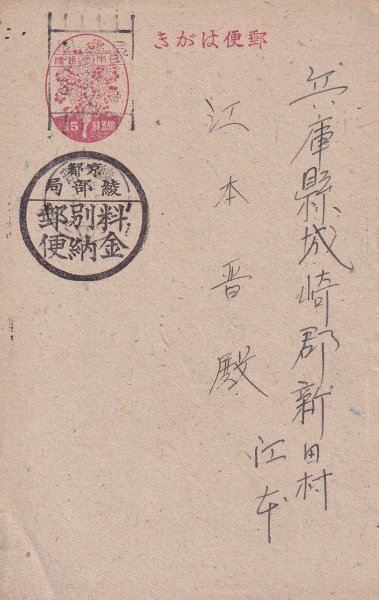 きがは便郵
兵庫縣城崎郡新田村
江本
江本晋殿
京都
綾部局
料金
別納
郵便
5